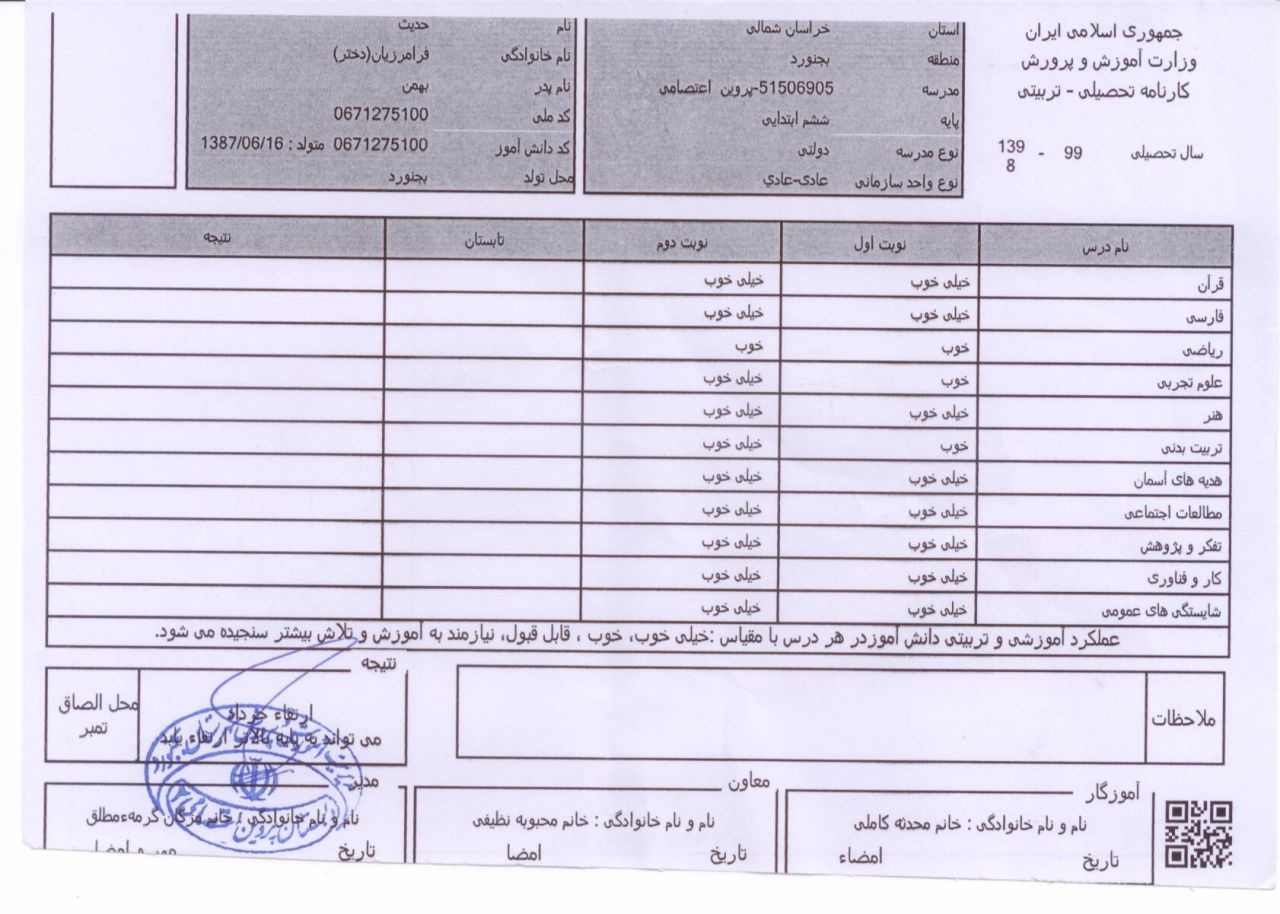 جمهوری اسلامی ایران
وزارت آموزش و پرورش
کارنامه تحصیلی - تربیتی
سال تحصیلی 99 - 1398
استان خراسان شمالی
منطقه بجنورد
مدرسه 51506905-پروین اعتصامی
پایه ششم ابتدایی
نوع مدرسه دولتی
نوع واحد سازمانی عادی-عادي
نام حدیث
نام خانوادگی فرامرزیان(دختر)
نام پدر بهمن
کد ملی 0671275100
کد دانش آموز 0671275100 متولد : 1387/06/16
محل تولد بجنورد
نام درس نوبت اول نوبت دوم تابستان نتیجه
قرآن خیلی خوب خیلی خوب
فارسی خیلی خوب خیلی خوب
ریاضی خوب خوب
علوم تجربی خوب خیلی خوب
هنر خیلی خوب خیلی خوب
تربیت بدنی خوب خیلی خوب
هدیه های آسمان خیلی خوب خیلی خوب
مطالعات اجتماعی خیلی خوب خیلی خوب
تفکر و پژوهش خیلی خوب خیلی خوب
کار و فناوری خیلی خوب خیلی خوب
شایستگی های عمومی خیلی خوب خیلی خوب
عملکرد آموزشی و تربیتی دانش آموزدر هر درس با مقیاس :خیلی خوب، خوب ، قابل قبول، نیازمند به آموزش و تلاش بیشتر سنجیده می شود.
ملاحظات
نتیجه
ارتقاء خرداد
می تواند به پایه بالاتر ارتقاء یابد
محل الصاق
تمبر
آموزگار
نام و نام خانوادگی : خانم محدثه کاملی
تاریخ امضاء
معاون
نام و نام خانوادگی : خانم محبوبه نظیفی
تاریخ امضا
مدیر
نام و نام خانوادگی : خانم مژگان گرمه‌ءمطلق
تاریخ مهر و امضا